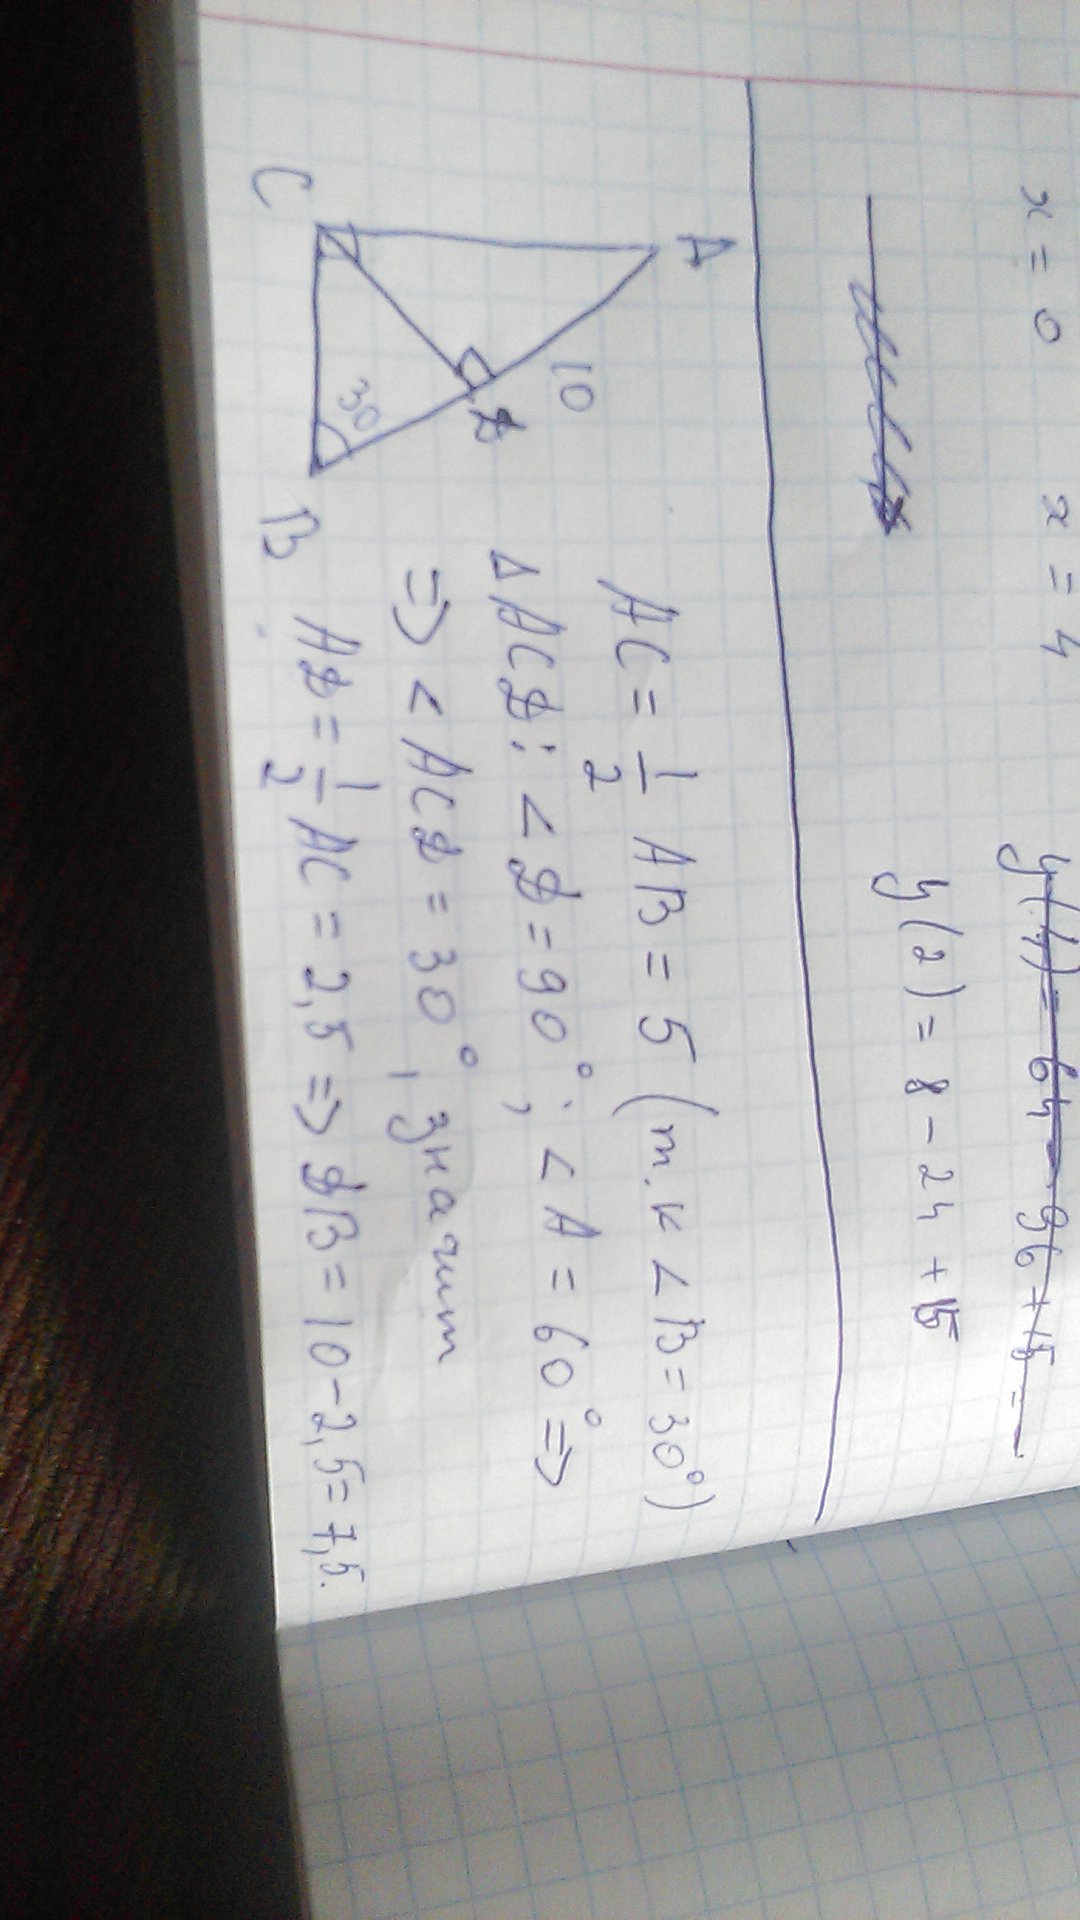 x = 0 x = 4
y(4) = 64 - 96 + 15 =
y(2) = 8 - 24 + 15
A
10
D
C
30
B
AC = 1/2 AB = 5 (т.к ∠B = 30°)
△ACD: ∠D = 90°; ∠A = 60° ⇒
⇒ ∠ACD = 30°, значит
AD = 1/2 AC = 2,5 ⇒ DB = 10 - 2,5 = 7,5.